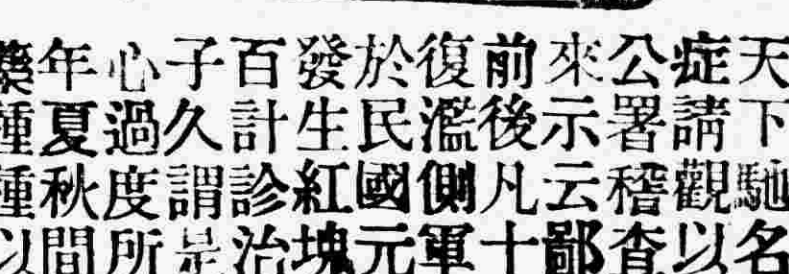 天下馳名
症請觀以
公署稽查
來示云鄙
前後凡十
復濫側軍
於民國元
發生紅塊
百計診治
子久謂是
心過度所
年夏秋間
藥種種以